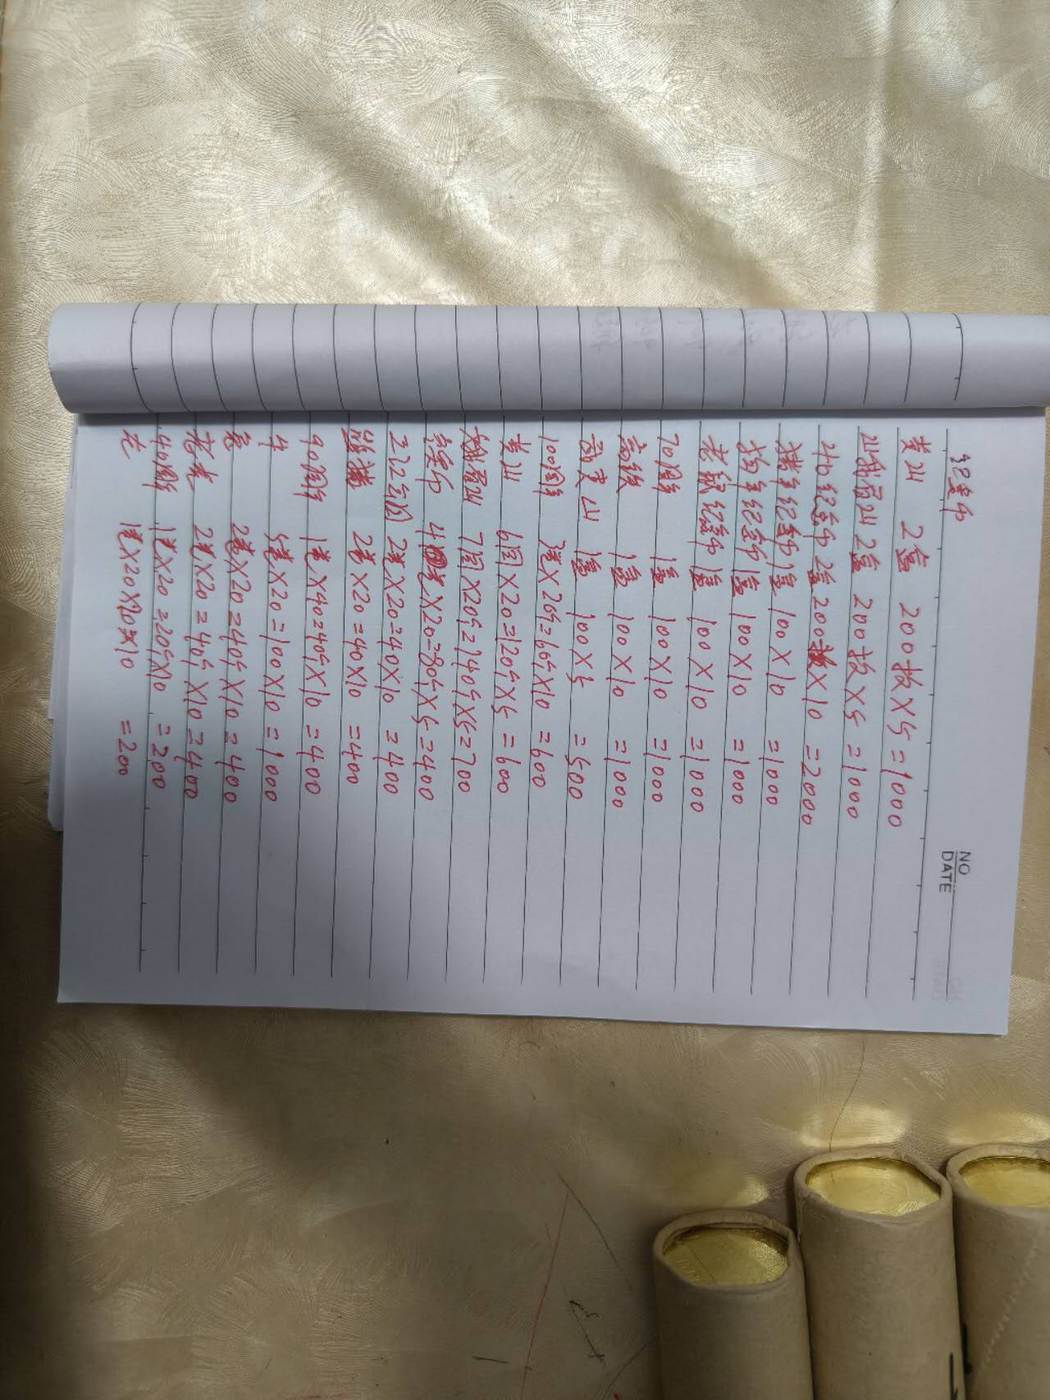 纪念币
NO
DATE
黄山 2盒 200枚×5=1000
峨眉山 2盒 200枚×5=1000
和纪念币 2盒 200×10=2000
猪年纪念币 1盒 100×10=1000
狗年纪念币 1盒 100×10=1000
老鼠纪念币 1盒 100×10=1000
70周年 1盒 100×10=1000
高铁 1盒 100×10=1000
武夷山 1盒 100×5=500
100周年 ×20=60×10=600
黄山 6同×20=120×5=600
峨眉山 7同×20=140×5=700
4 ×20=80×5=400
2 ×20=40×10=400
2 ×20=40×10=400
90周年 1 ×40=40×10=400
牛 5 ×20=100×10=1000
2 ×20=40×10=400
2 ×20=40×10=400
90周年 1 ×20=20×10=200
1 ×20×10=200